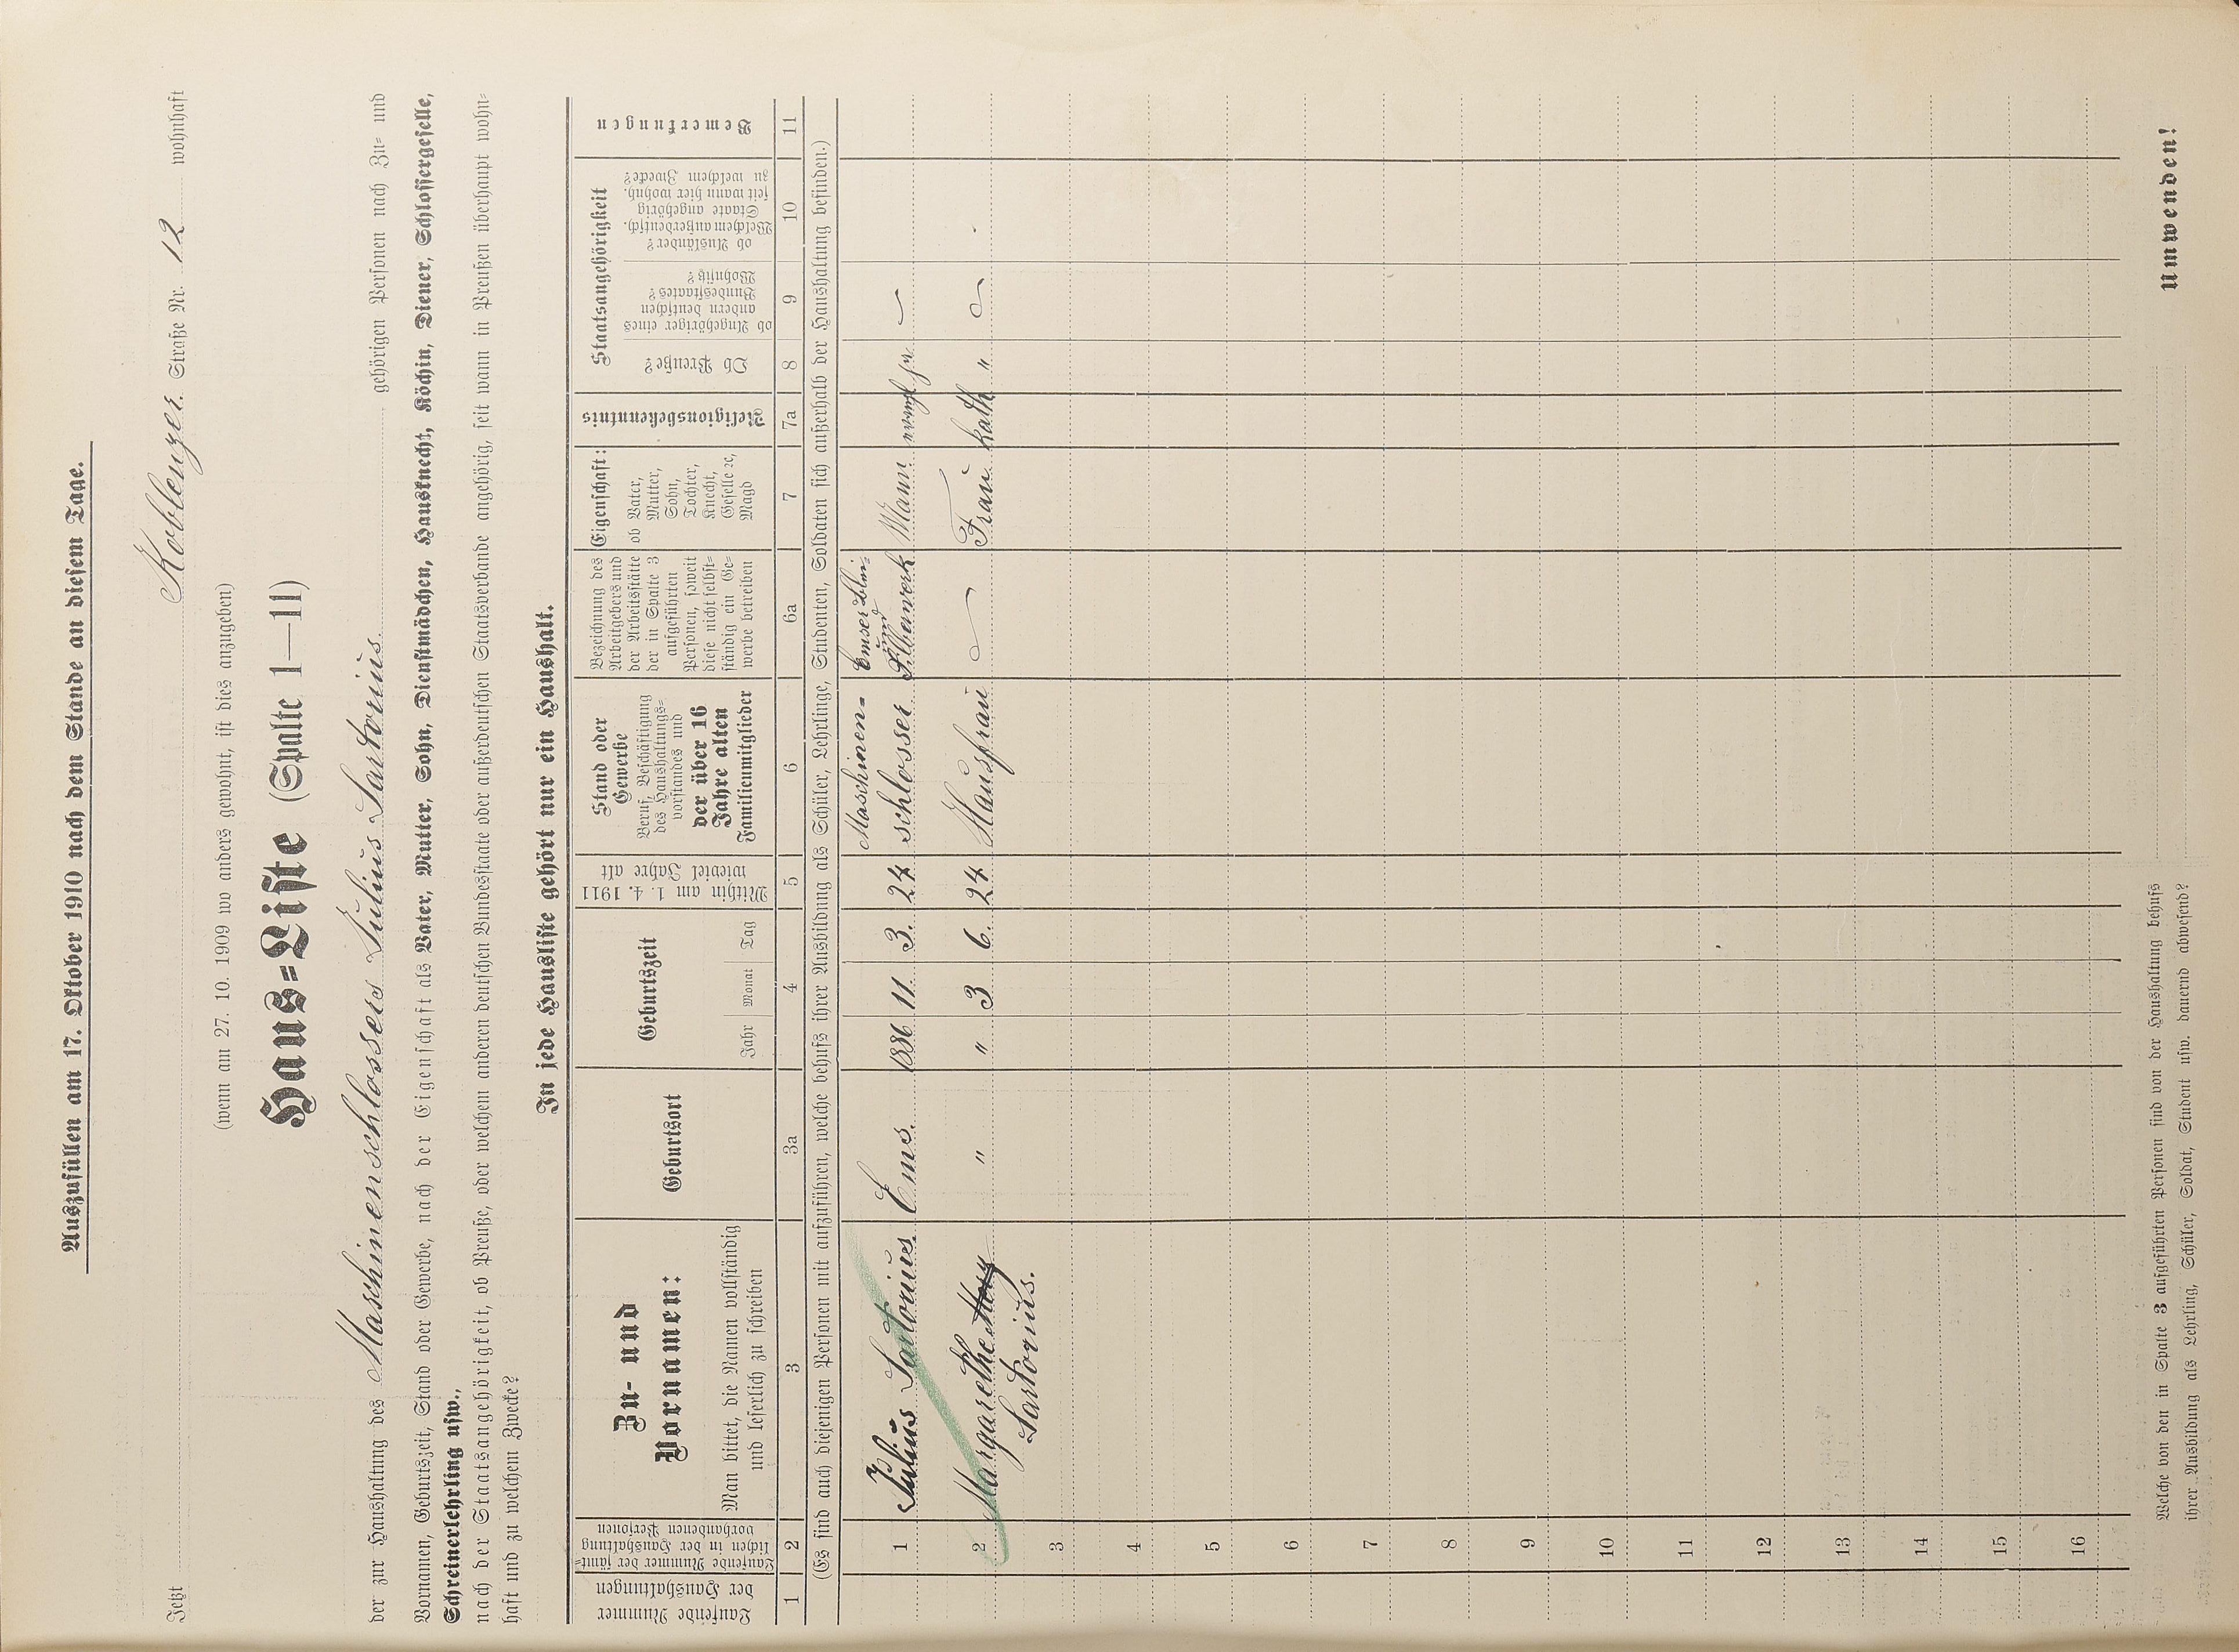 Auszufüllen am 17. Oktober 1910 nach dem Stande an diesem Tage.
Jetzt Koblenzer Straße Nr. 12 wohnhaft
(wenn am 27. 10. 1909 wo anders gewohnt, ist dies anzugeben)
Haus=Liste (Spalte 1—11)
der zur Haushaltung des Maschinenschlossers Julius Sartorius. gehörigen Personen nach Zu= und
Vornamen, Geburtszeit, Stand oder Gewerbe, nach der Eigenschaft als Vater, Mutter, Sohn, Dienstmädchen, Hausknecht, Köchin, Diener, Schlossergeselle,
Schreinerlehrling usw.,
nach der Staatsangehörigkeit, ob Preuße, oder welchem anderen deutschen Bundesstaate oder außerdeutschen Staatsverbande angehörig, seit wann in Preußen überhaupt wohn=
haft und zu welchem Zwecke?
In jede Hausliste gehört nur ein Haushalt.
Laufende Nummer
der Haushaltungen
Laufende Nummer der sämt=
lichen in der Haushaltung
vorhandenen Personen
Zu- und
Vornamen:
Man bittet, die Namen vollständig
und leserlich zu schreiben
Geburtsort
Geburtszeit
Jahr Monat Tag
Mithin am 1. 4. 1911
wieviel Jahre alt
Stand oder
Gewerbe
Beruf, Beschäftigung
des Haushaltungs=
vorstandes und
der über 16
Jahre alten
Familienmitglieder
Bezeichnung des
Arbeitgebers und
der Arbeitsstätte
der in Spalte 3
aufgeführten
Personen, soweit
diese nicht selbst=
ständig ein Ge=
werbe betreiben
Eigenschaft:
ob Vater,
Mutter,
Sohn,
Tochter,
Knecht,
Geselle ec,
Magd
Religionsbekenntnis
Staatsangehörigkeit
Ob Preuße?
ob Angehöriger eines
andern deutschen
Bundesstaates?
Wohnsitz?
ob Ausländer?
Welchem außerdeutsch.
Staate angehörig
seit wann hier wohnh.
zu welchem Zwecke?
Bemerkungen
1 2 3 3a 4 5 6 6a 7 7a 8 9 10 11
(Es sind auch diejenigen Personen mit aufzuführen, welche behufs ihrer Ausbildung als Schüler, Lehrlinge, Studenten, Soldaten sich außerhalb der Haushaltung befinden.)
Maschinen= Emser Blei=
und
1 Julius Sartorius. Ems. 1886 11. 3. 24 schlosser Silberwerk Mann evangl ja
2 Margarethe " " 3 6. 24 Hausfrau Frau kath "
Sartorius.
3
4
5
6
7
8
9
10
11
12
13
14
15
16
Welche von den in Spalte 3 aufgeführten Personen sind von der Haushaltung behufs
ihrer Ausbildung als Lehrling, Schüler, Soldat, Student usw. dauernd abwesend?
Umwenden!